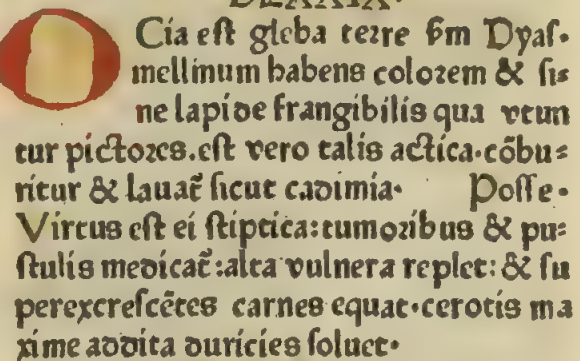 OCia eſt gleba terre ẜm Dyaſ⸗
mellinum habens colorem & ſi⸗
ne lapide frangibilis qua vtun
tur pictores.eſt vero talis actica.cōbu⸗
ritur & lauat̄ ſicut cadimia. Poſſe.
Virtus eſt ei ſtiptica:tumoribus & pu⸗
ſtulis medicat̄:alta vulnera replet: & ſu
perexcreſcētes carnes equat.cerotis ma
xime addita duricies ſoluet.